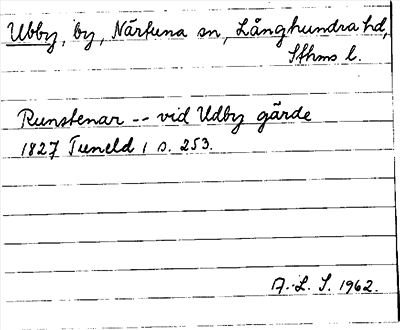 Ubby, by, Närtuna sn, Långhundra hd,
Sthms l.
Runstenar -- vid Udby gärde
1827 Tuneld 1 s. 253.
A.-L. S. 1962.